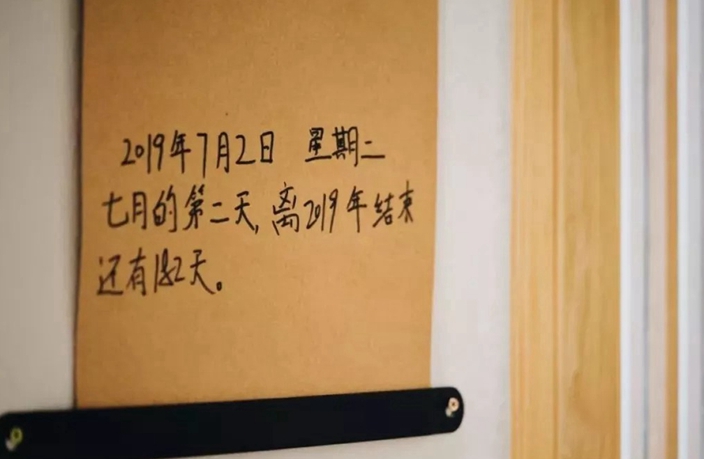 2019年7月2日 星期二
七月的第二天,离2019年结束
还有182天。